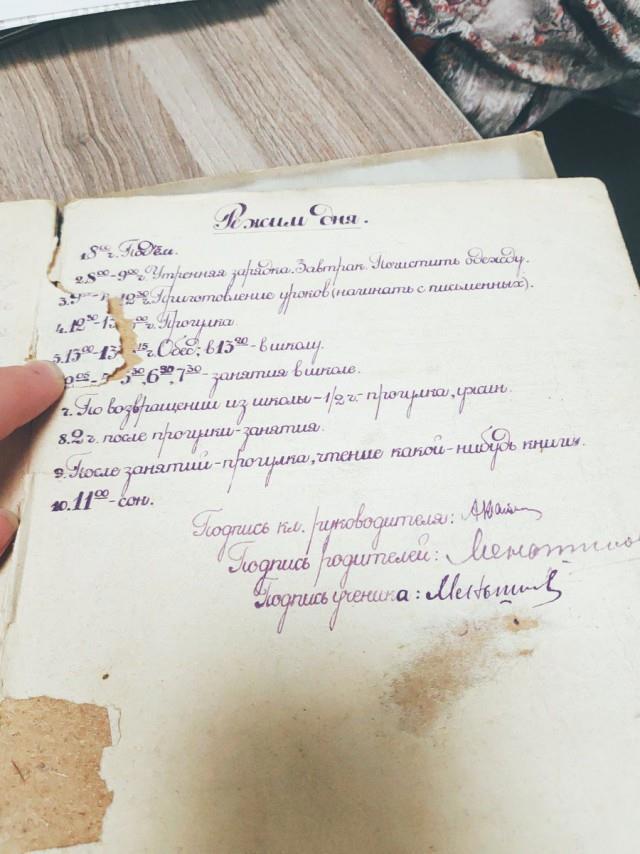 Режим дня.
1.8⁰⁰ч. Подъём.
2.8⁰⁰-9⁰⁰ч Утренняя зарядка. Завтрак. Почистить одежду.
12³⁰ч. Приготовление уроков (начинать с письменных).
4.12³⁰-13⁰⁰ч. Прогулка.
5.13⁰⁰-13¹⁵ч. Обед; в 13²⁰-в школу.
6³⁰, 7³⁰-занятия в школе.
7. По возвращении из школы-1/2 ч.-прогулка, ужин.
8.2 ч. после прогулки-занятия.
9. После занятий-прогулка, чтение какой-нибудь книги.
10.11⁰⁰-сон.
Подпись кл. руководителя:
Подпись родителей:
Подпись ученика: